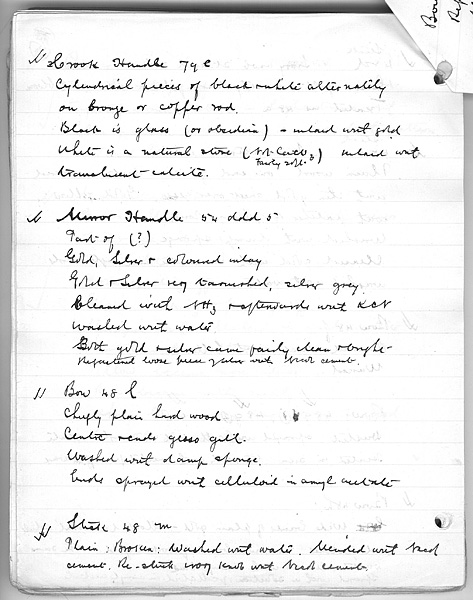 Bow
Crook Handle 79 e
Cylindrical pieces of black & white alternately
on bronze or copper rod.
Black is glass (or obsidian) - inlaid wit gold
White is a natural stone (Not CaCO3) inlaid wit
Fairly soft.
translucent calcite.
Mirror Handle 54 ddd 5
Part of (?)
Gold, Silver & coloured inlay
Gold & Silver very tarnished, silver grey.
Cleaned wit NH3 & afterwards wit KCN
Washed wit water.
Both gold & silver came fairly clean & bright
Replaced loose piece of silver wit cement.
11 Bow 48 h
Chiefly plain hard wood
Centre & ends gesso gilt.
Washed wit damp sponge.
Ends sprayed wit celluloid in amyl acetate
Stick 48 m
Plain: Broken: Washed wit water. Mended wit
cement. Re-stuck ivory knob wit cement.